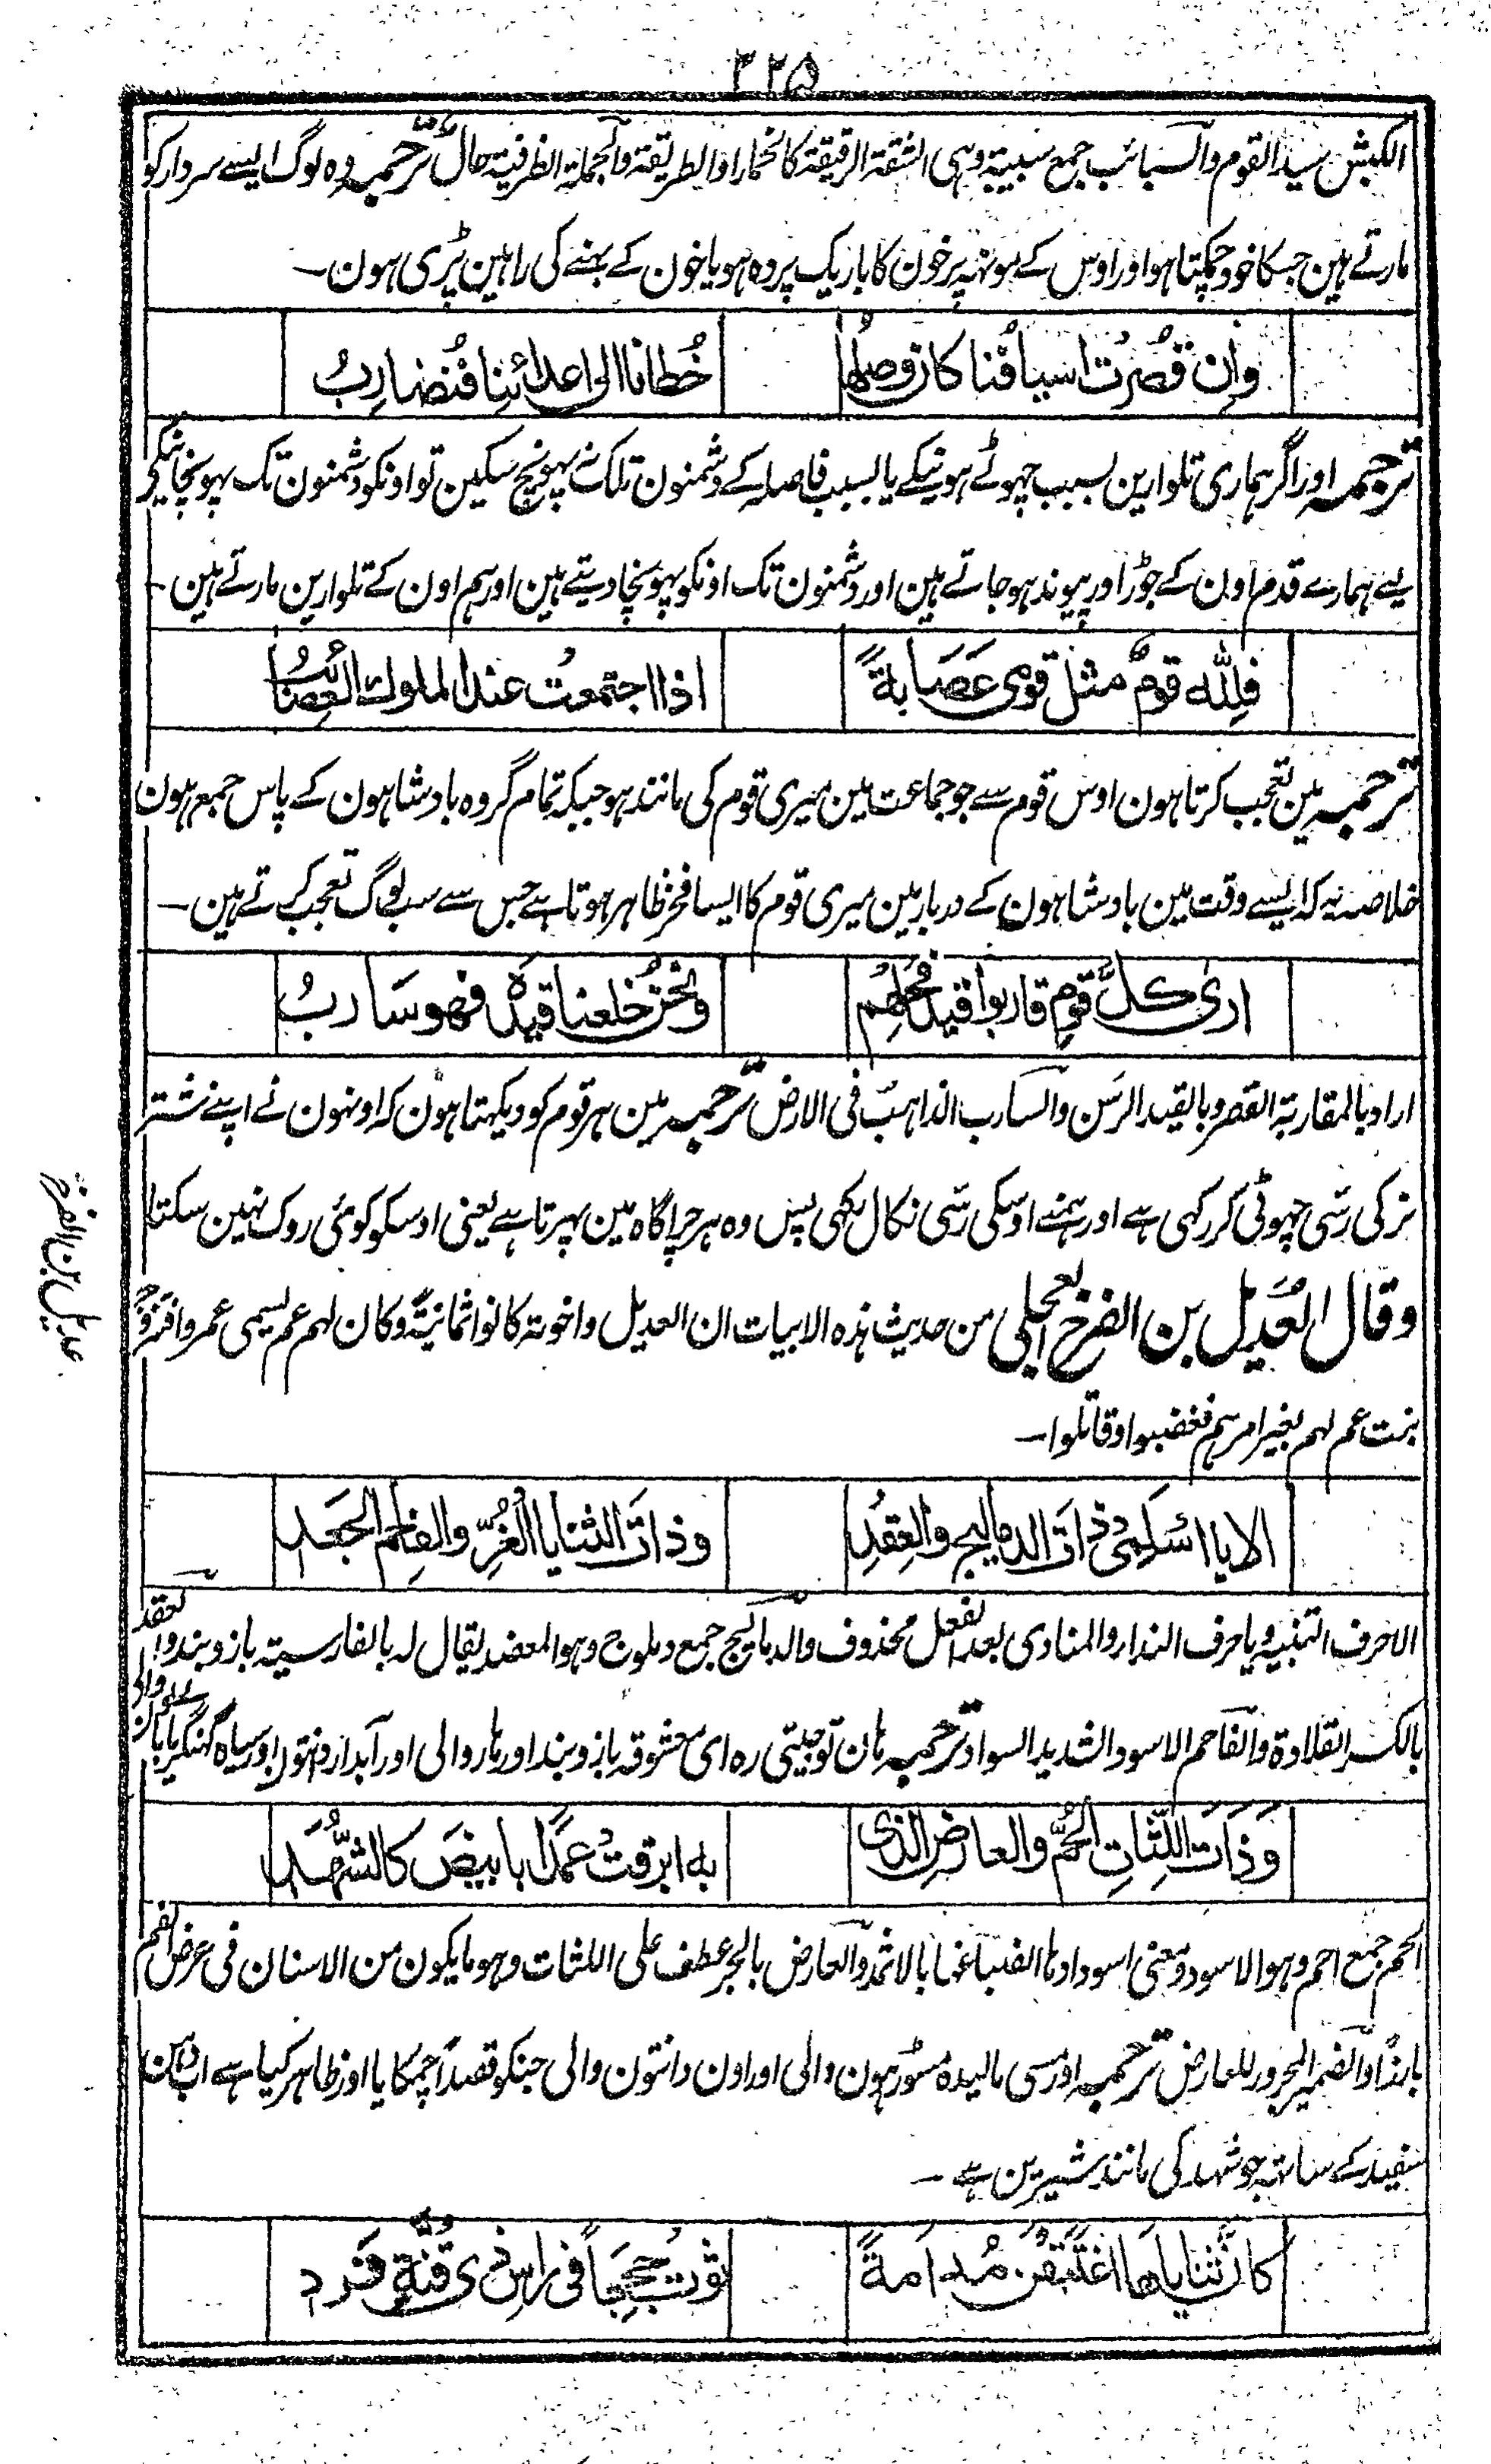 ٣٢٥
الکبش سید القوم والسبائب جمع سبیبة وہی الشقة الرقیقة کالخمار او الطریقة والجملة الظرفیة حال ترجمہ وہ لوگ ایسے سردار کو
مارتے ہین جسکا خود چمکتا ہو اور اوس کے مونہہ پر خون کا باریک پردہ ہو یا خون کے بہنے کی راہین پڑی ہون۔
وان قصُرت اسیافُنا کان وصلُها خُطانا الی اعدائِنا فنُضارِبُ
ترجمہ اور اگر ہماری تلوارین بسبب چہوٹے ہونیکے یا بسبب فاصلہ کے دشمنون تلک نہ پہونچ سکین تو اونکو دشمنون تک پہونچانیکے
لیے ہمارے قدم اون کے جوڑ اور پیوند ہو جاتے ہین اور دشمنون تک اونکو پہونچا دیتے ہین اور ہم اون کے تلوارین مارتے ہین۔
فلِلّٰه قومٌ مثل قومی عَصَابةً اذا اجتمعتُ عند الملوك العصائبُ
ترجمہ مین تعجب کرتا ہون اوس قوم سے جو جماعت مین میری قوم کی مانند ہو جبکہ تمام گروہ بادشاہون کے پاس جمع ہون
خلاصہ یہ کہ ایسے وقت مین بادشاہون کے دربار مین میری قوم کا ایسا فخر ظاہر ہوتا ہے جس سے سب لوگ تعجب کرتے ہین۔
اری کلَّ قومٍ قاربوا قید فحلِهُم ونحنُ خلعنا قیدَهٗ فهو سَاربُ
اراد بالمقاربة القصر وبالقید الرسن والسارب الذاہب فی الارض ترجمہ مین ہر قوم کو دیکہتا ہون کہ اونہون نے اپنے شتر
نر کی رسّی چہوٹی کر رکہی ہے اور ہمنے اوسکی رسّی نکال رکہی پس وہ ہر چراگاہ مین پہرتا ہے یعنی اوسکو کوئی روک نہین سکتا
وقال العُدَیل بن الفرخ العجلی من حدیث ہذہ الابیات ان العدیل واخوتہ کانوا ثمانیة وکان لہم عم یسمی عمروا فتزوج
بنت عم لہم بغیر امرہم فغضبوا وقاتلوا۔
عدیل بن الفرخ
الا یا اسلَمی ذاتَ الدمالیج والعِقدِ وذاتَ الثنایا الغُرِّ والفاحِم الجَعد
الا حرف التنبیہ ویا حرف النداء والمنادی بعد الفعل محذوف والدمالیج جمع دملوج وہو المعضد یقال لہ بالفارسیة بازوبند والعقد
بالکسر القلادة والفاحم الاسود الشدید السواد ترجمہ ہان تو جیتی رہ ای معشوقہ بازوبند اور ہار والی اور آبدار دانتون اور سیاہ گہنگریالے بالون والی
وَذَاتَ اللِّثاتِ الحُمِّ والعارِضِ الذی به ابرقتُ عمَدًا بابیضَ کالشُّهدِ
الحم جمع احم وہو الاسود ومعنی اسوداد ہا الصباغہا بالاثمد والعارض بالجر عطف علی اللثات وہو ما یکون من الاسنان فی عرض الفم
والضمیر المجرور للعارض ترجمہ اور مسی مالیدہ مسوڑہون والی اور اون دانتون والی جنکو قصداً چمکایا اور ظاہر کیا ہے آب دہن
سفید کے ساتہہ جو شہد کی مانند شیرین ہے۔
کانَّ ثنایاها اغتَبَقْنَ مُدامةً ثوت حِججًا فی راسِ ذی قُنّةٍ فَرد